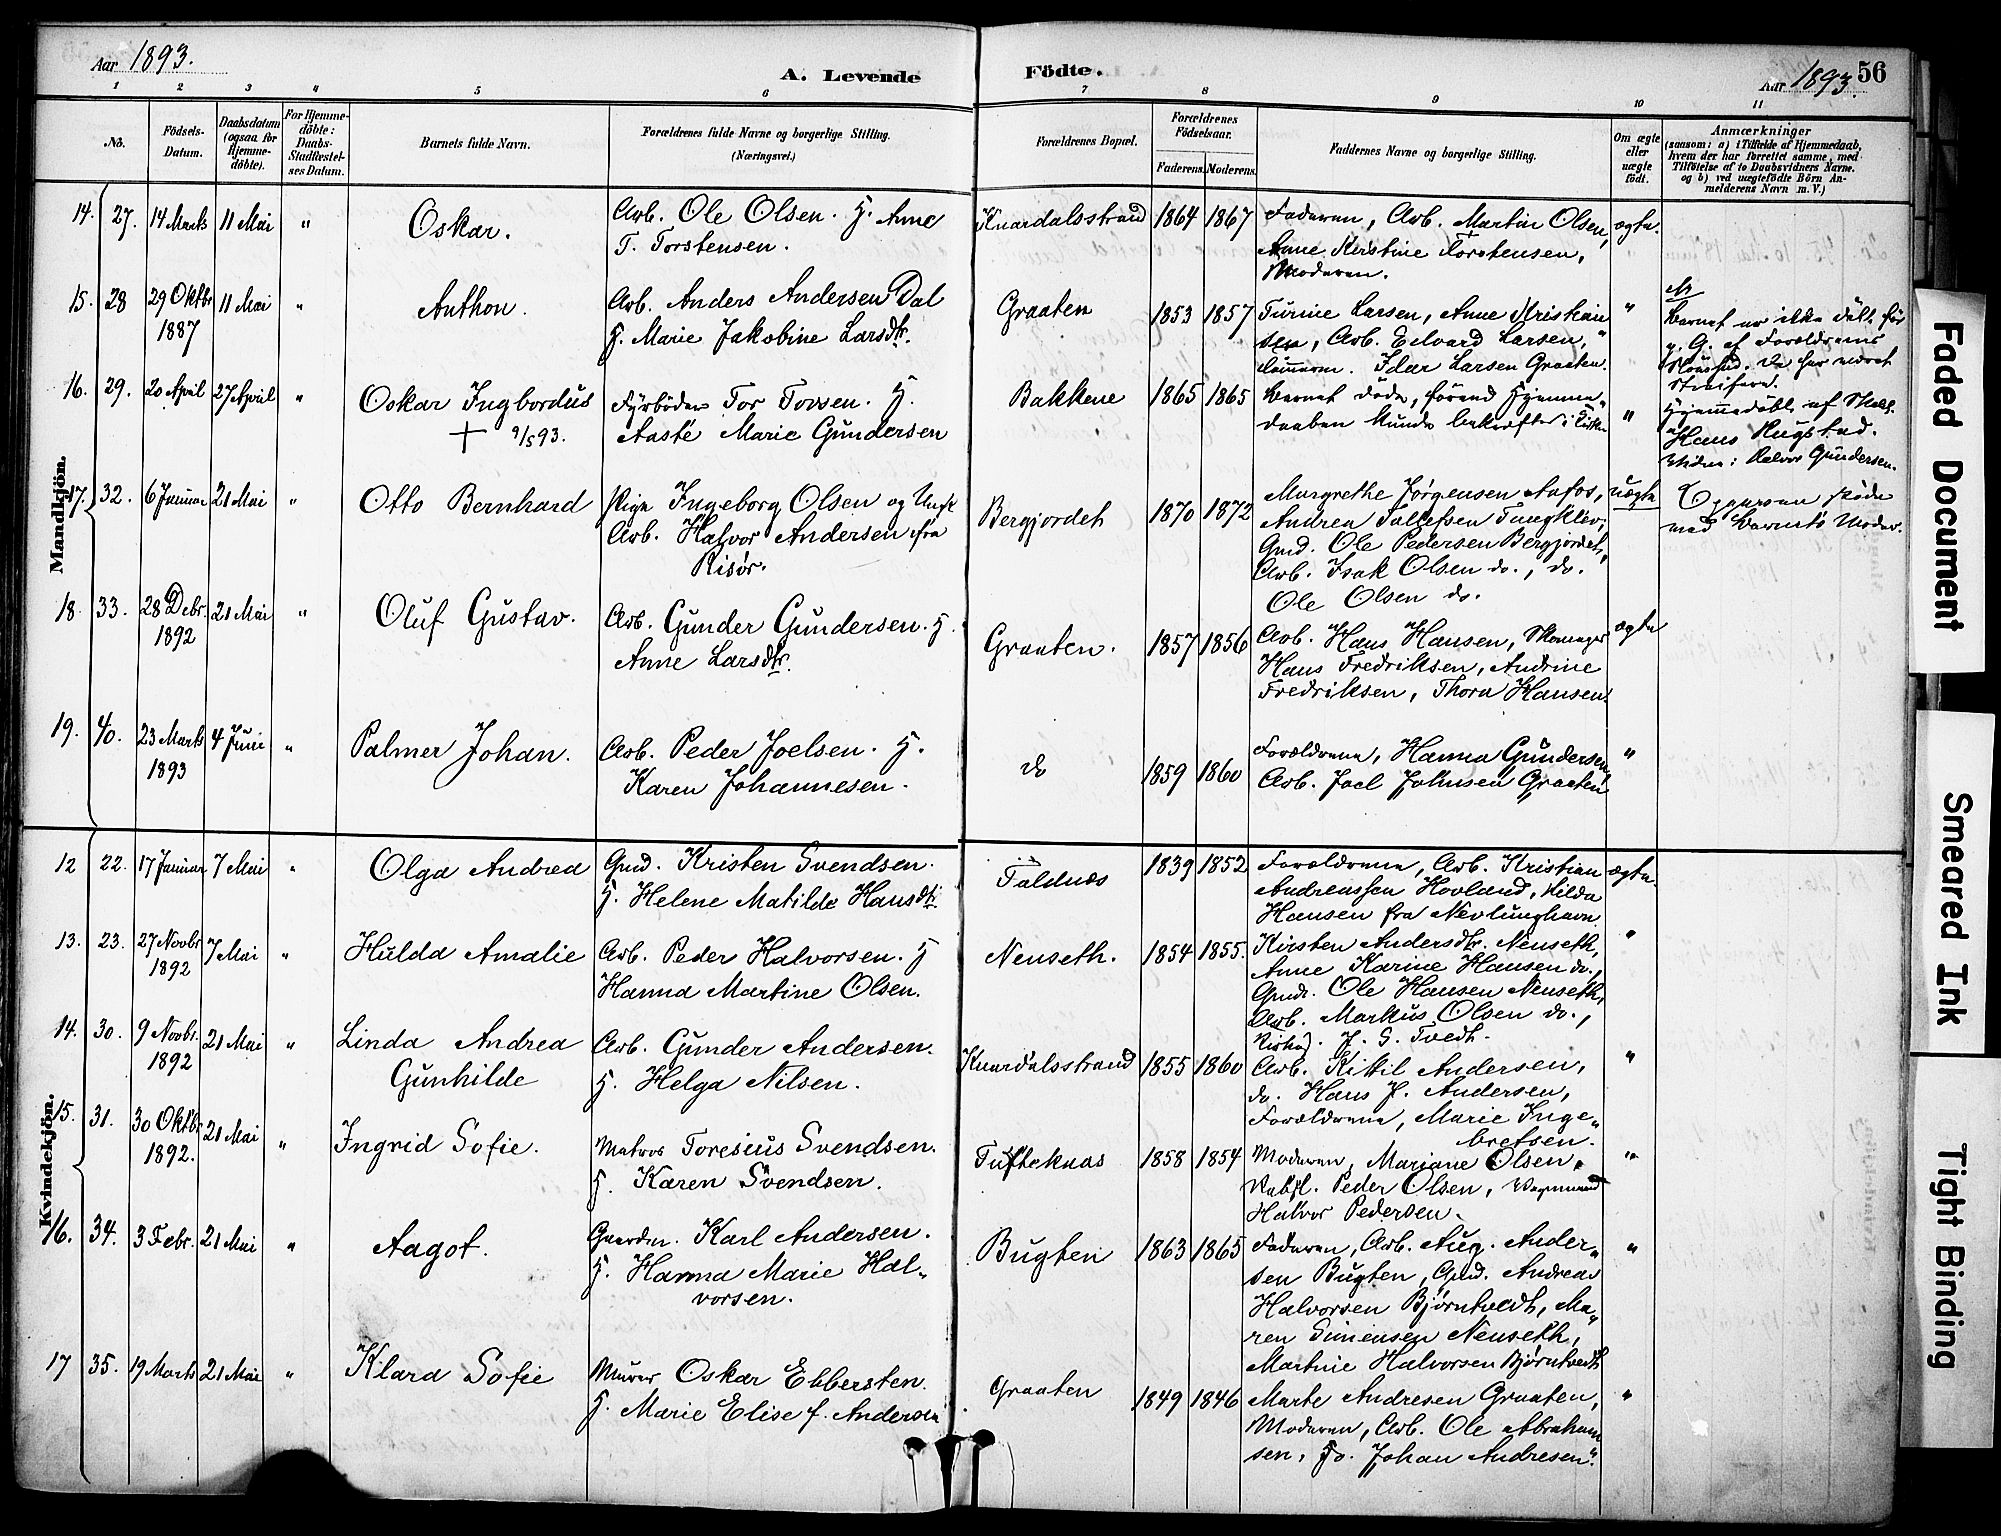 Aar 1893.
A. Levende Födte.
Aar 1893. 56
1 2 3 4 5 6 7 8 9 10 11
No.
Födsels-
Datum.
Daabsdatum
(ogsaa for
Hjemme-
döbte).
For Hjemme-
döbte:
Daabs-
Stadfæstel-
ses Datum.
Barnets fulde Navn.
Forældrenes fulde Navne og borgerlige Stilling.
(Næringsvei.)
Forældrenes Bopæl.
Forældrenes
Födselsaar.
Faderens. Moderens.
Faddernes Navne og borgerlige Stilling.
Om ægte
eller
uægte
födt.
Anmærkninger
(saasom: a) i Tilfælde af Hjemmedaab,
hvem der har forrettet samme, med
Tilföielse af to Daabsvidners Navne.
og b) ved uægtefödte Börn An-
melderens Navn m. V.)
Mandkjön.
14. 27. 14 Marts 11 Mai " Oskar. Arb. Ole Olsen. H. Anne
T. Torstensen. Knardalsstrand 1864 1867 Faderen, Arb. Martin Olsen,
Anne Kirstine Torstensen,
Moderen. ægte.
15. 28 29 Oktbr
1887 11 Mai " Anthon. Arb. Anders Andersen Dal
H. Marie Jakobine Larsdtr. Graaten 1853 1857 Turine Larsen, Anne Kristian
sen, Arb. Edvard Larsen,
Tømmerm. Idar Larsen Graaten. "
Barnet er ikke døbt før
af Forældrenes
16. 29. 20 April 27 April " Oskar Ingbordus
† 9/5 93. Fyrbøder Tor Tovsen. H.
Aaste Marie Gundersen Bakkene 1865 1865 Barnet døde, førend Hjemme
daaben kunde bekræftes i Kirken "
Hjemmedøbt af
Hans Rugstad.
Halvor Gundersen.
17. 32. 6 Januar 21 Mai " Otto Bernhard Pige Ingeborg Olsen og Ungk
Arb. Halvor Andersen fra
Risør. Bergjordet 1870 1872 Margrethe Jørgensen Aafos,
Andrea Tollefsen Tangklev,
Gmd. Ole Pedersen Bergjordet,
Arb. Isak Olsen do., do.
Ole Olsen do. uægte
med Barnets Moder.
18. 33. 28 Debr.
1892 21 Mai " Oluf Gustav. Arb. Gunder Gundersen. H.
Anne Larsdtr. Graaten. 1857 1856 Arb. Hans Hansen, Skomager
Hans Fredriksen, Andrine
Fredriksen, Thora Hansen. ægte
19. 40. 23 Marts
1893 4 Juni " Palmer Johan. Arb. Peder Joelsen. H.
Karen Johannesen. do 1859 1860 Forældrene, Hanna Gundersen,
Arb. Joel Johnsen Graaten "
Kvindekjön.
12 22. 17 Januar 7 Mai " Olga Andrea Gmd. Kristen Svendsen.
H. Helene Matilde Hansdtr. Toldnæs 1839 1852 Forældrene, Arb. Kristian
Andreassen Hovland, Hilda
Hansen fra Nevlunghavn ægte.
13. 23. 27 Novbr
1892 7 Mai " Hulda Amalie Arb. Peder Halvorsen. H
Hanna Martine Olsen. Nenseth. 1854 1855. Kirsten Andersdtr. Nenseth,
Anne Karine Hansen do.,
Gmd. Ole Hansen Nenseth,
Arb. Markus Olsen do.,
J. S. Tvedt. "
14. 30. 9 Novbr.
1892 21 Mai " Linda Andrea
Gunhilde Arb. Gunder Andersen.
H. Helga Nilsen. Knardalsstrand 1855 1860 Arb. Kittil Andersen,
do. Hans J. Andersen,
Forældrene, Marie Inge-
bretsen. "
15. 31. 30 Oktbr
1892. 21 Mai " Ingrid Sofie. Matros Toresius Svendsen.
H. Karen Svendsen. Tufteknas 1858 1854 Moderen, Mariane Olsen,
Peder Olsen, Vognmand
Halvor Pedersen. "
16. 34. 3 Febr. 21 Mai " Aagot. Gaardm. Karl Andersen.
H. Hanna Marie Hal-
vorsen. Bugten 1863 1865 Faderen, Arb. Aug. Ander-
sen Bugten, Gmd. Andreas
Halvorsen Bjørntvedt, Ma-
ren Simensen Nenseth,
Martine Halvorsen Bjørntvedt "
17 35. 19 Marts 21 Mai " Klara Sofie Murer Oskar Ebbersten.
H. Marie Elise f. Andersen Graaten 1849 1846 Marte Andresen Graaten,
Moderen, Arb. Ole Abraham
sen, Do. Johan Andresen. "
Faded Document
Smeared Ink
Tight Binding